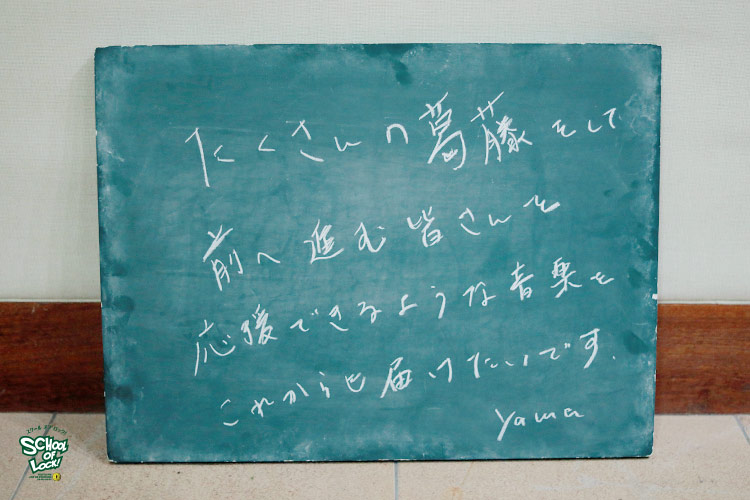 たくさんの葛藤をして
前へ進む皆さんを
応援できるような音楽を
これからも届けたいです.
yama
スクール オブ ロック!
SCHOOL
OF
LOCK!